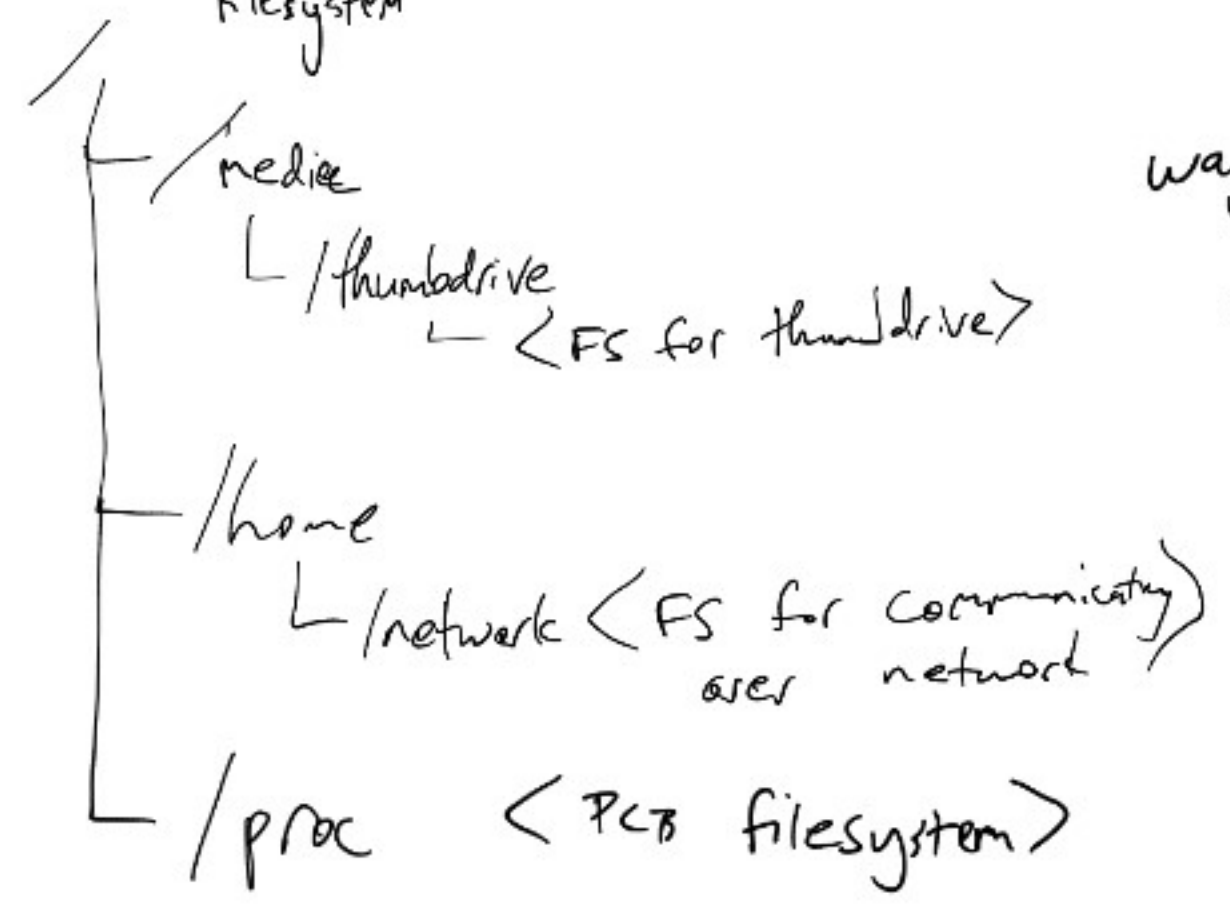 filesystem
/
/media
/thumbdrive
<FS for thumbdrive>
wa
/home
/network <FS for communicating>
over network
/proc <PCB filesystem>